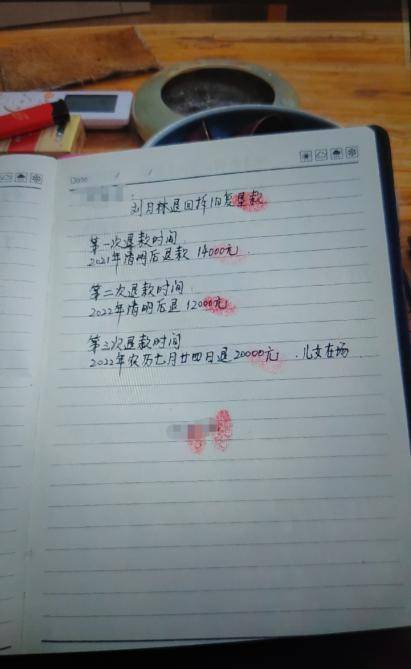 Date
刘月林退回拆旧复垦款
第一次退款时间
2021年清明后退款 14000元
第二次退款时间
2022年清明后退 12000元
第三次退款时间
2022年农历七月廿四日退 20000元 . 儿女在场